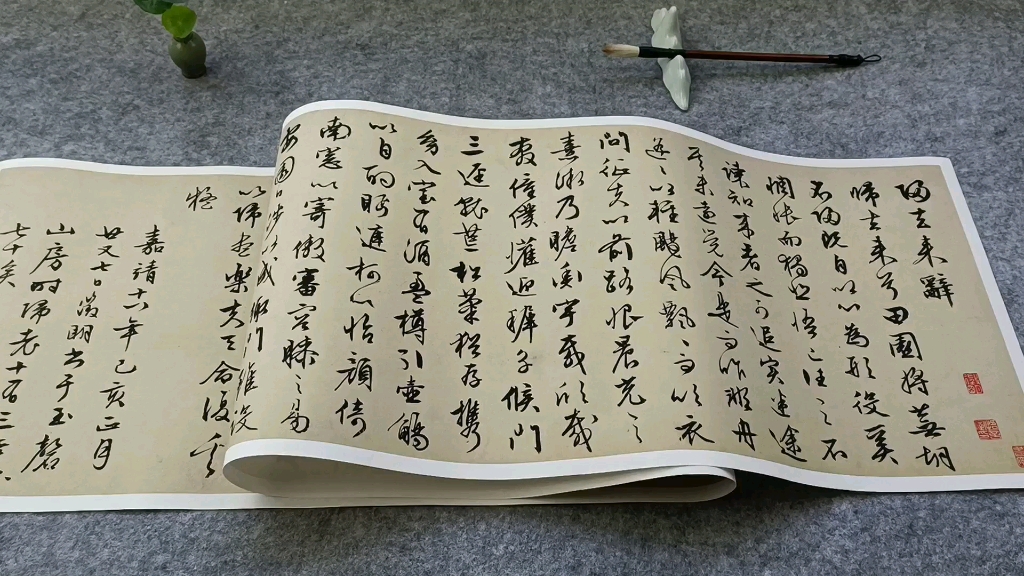 歸去來辭
歸去來兮田園將蕪胡
不歸既自以心為形役奚
惆悵而獨悲悟已往之不
諫知來者之可追實迷途
其未遠覺今是而昨非舟
遙々以輕颺風飄々而吹衣
問征夫以前路恨晨光之
熹微乃瞻衡宇載欣載
奔僮僕歡迎稚子候門
三逕就荒松菊猶存攜
幼入室有酒盈樽引壺觴
以自酌眄庭柯以怡顏倚
南窗以寄傲審容膝之易
安園日涉以成趣門雖設
以歸盡樂夫天命復奚
疑
嘉靖十八年己亥正月
廿又七日徵明書于玉磬
山房時歸老十有三年
七十矣